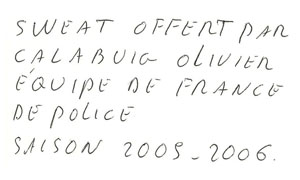 SWEAT OFFERT PAR
CALABUIG OLIVIER
ÉQUIPE DE FRANCE
DE POLICE
SAISON 2005_2006.